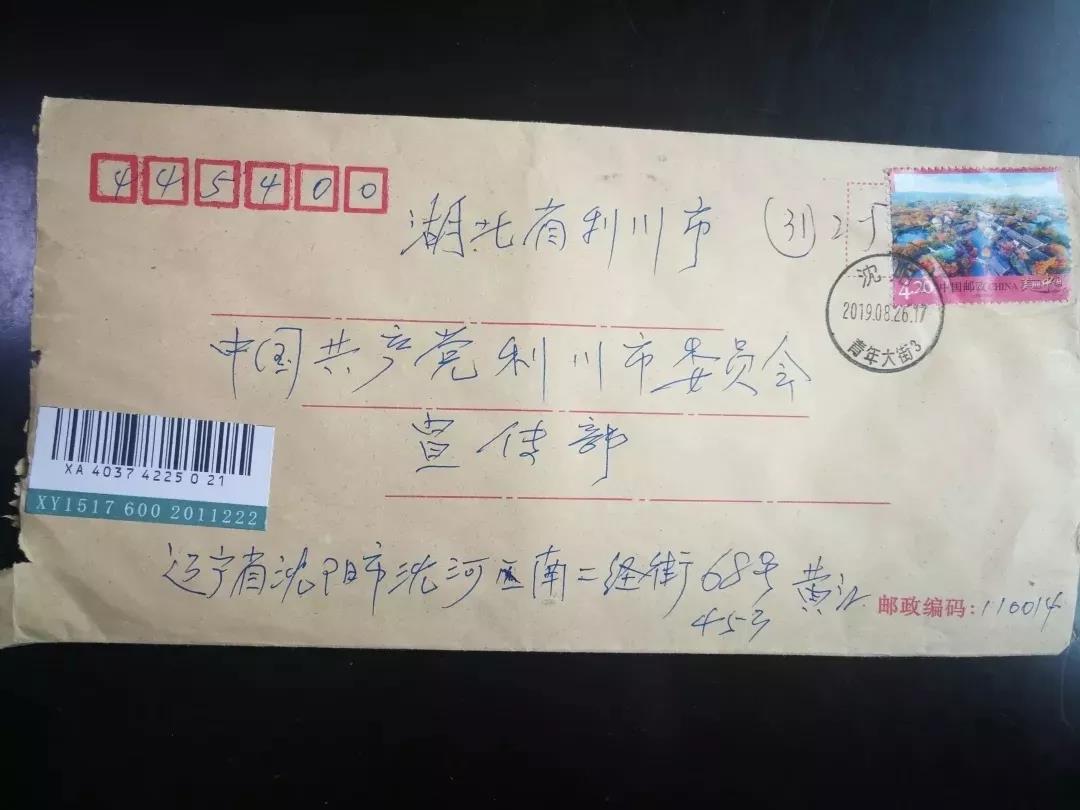 445400
湖北省利川市 (31) 25
4.20 中国邮政 CHINA 美丽中国
沈阳
2019.08.26.17
青年大街3
中国共产党利川市委员会
宣传部
XA 4037 4225 0 21
XY1517 600 2011222
辽宁省沈阳市沈河区南二经街68号 黄
45号
邮政编码:110014